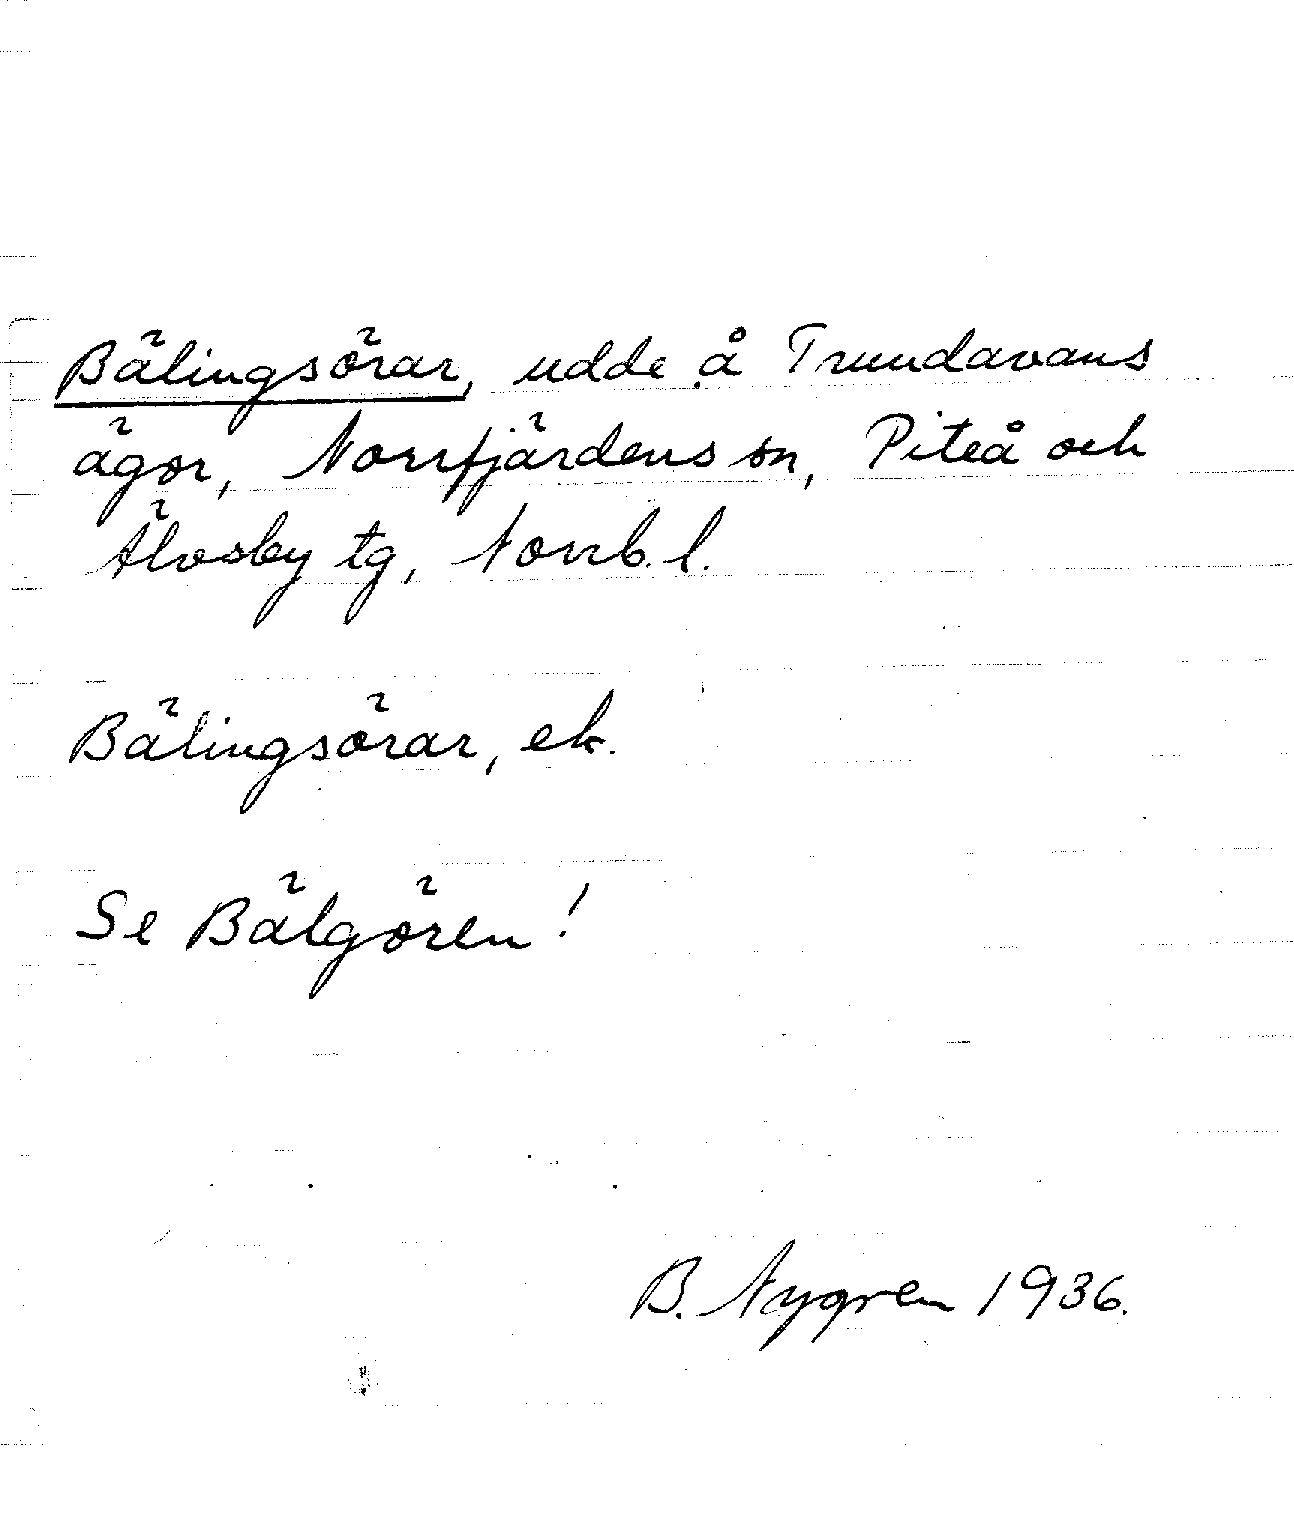 Bälingsörar, udde å Trundavans
ägor, Norrfjärdens sn, Piteå och
Älvsby tg, Norrb. l.
Bälingsörar, ek.
Se Bälgören!
B. Nygren 1936.